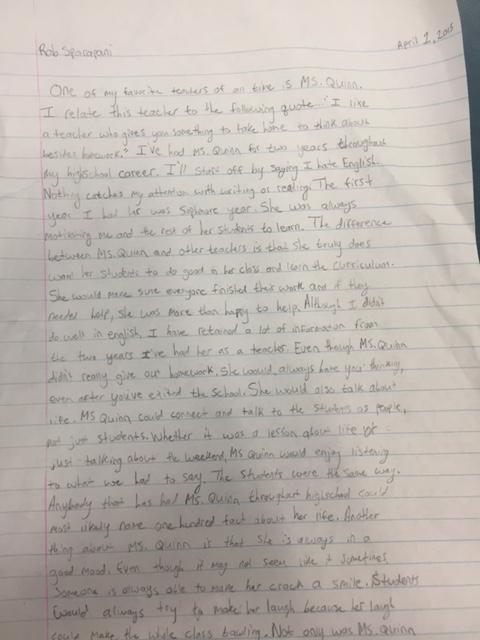 Rob Spacapani
April 2, 2015
One of my favorite teachers of all time is Ms. Quinn.
I relate this teacher to the following quote "I like
a teacher who gives you something to take home to think about
besides homework." I've had Ms. Quinn for two years throughout
my highschool career. I'll start off by saying I hate English.
Nothing catches my attention with writing or reading. The first
year I had her was Sophmore year. She was always
motivating me and the rest of her students to learn. The difference
between Ms. Quinn and other teachers is that she truly does
want her students to do good in her class and learn the curriculum.
She would make sure everyone finished their work and if they
needed help, she was more than happy to help. Although I didn't
do well in english, I have retained a lot of information from
the two years I've had her as a teacher. Even though Ms. Quinn
didn't really give out homework, she would always have you thinking,
even after you've exited the school. She would also talk about
life. Ms Quinn could connect and talk to the students as people,
not just students. Whether it was a lesson about life or
just talking about the weekend, Ms Quinn would enjoy listening
to what we had to say. The students were the same way.
Anybody that has had Ms. Quinn throughout highschool could
most likely name one hundred fact about her life. Another
thing about Ms. Quinn is that she is always in a
good mood. Even though it may not seem like it sometimes
someone is always able to make her crack a smile. Students
would always try to make her laugh because her laugh
could make the whole class bawling. Not only was Ms. Quinn